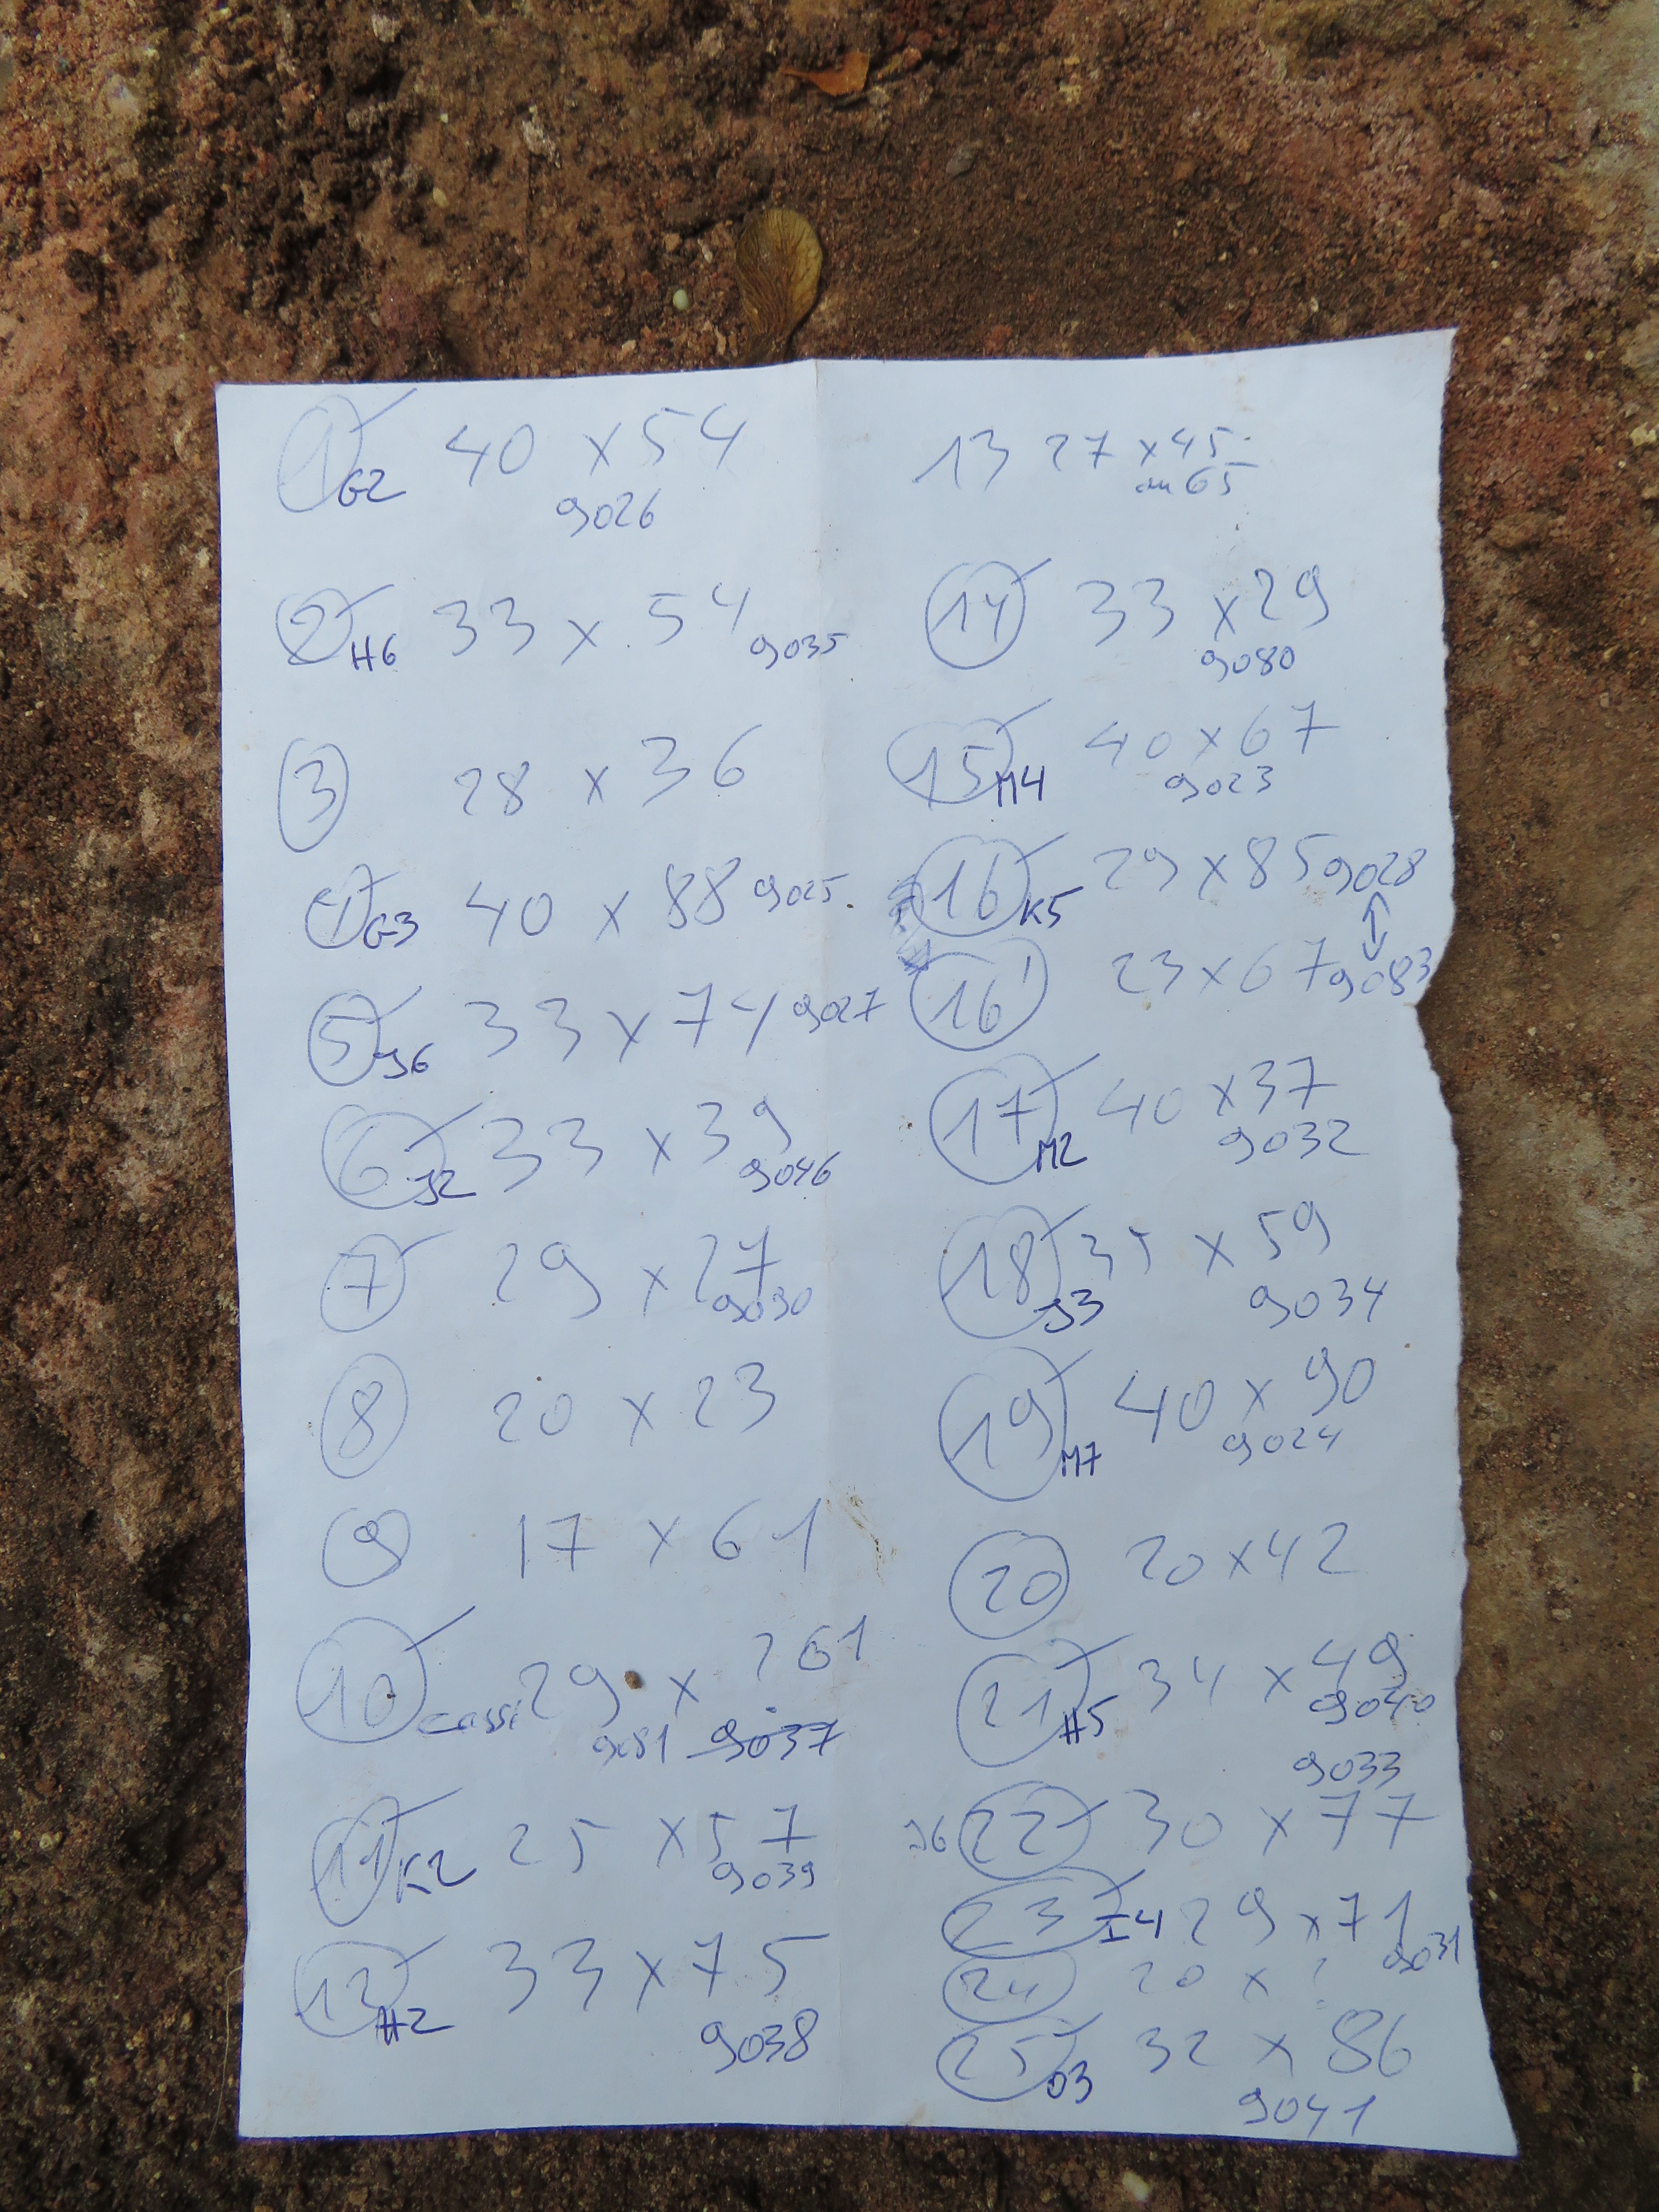 1 G2 40 x 54
9026
2 H6 33 x 54 9035
3 28 x 36
G3 40 x 88 9025
5 J6 33 x 74 9027
6 J2 33 x 39
9046
7 29 x 27
9030
8 20 x 23
9 17 x 61
10 cassi 29 x ? 61
9081 9037
11 K2 25 x 57
9039
12 H2 33 x 75
9038
13 27 x 45
65
14 33 x 29
9080
15 M4 40 x 67
9023
16 K5 29 x 85 9028
16' 23 x 67 9083
17 M2 40 x 37
9032
18 J3 35 x 59
9034
19 M7 40 x 90
9024
20 20 x 42
21 H5 34 x 49
9040
9033
J6 22 30 x 77
23 I4 29 x 71
9031
24 20 x ?
25 O3 32 x 86
9041